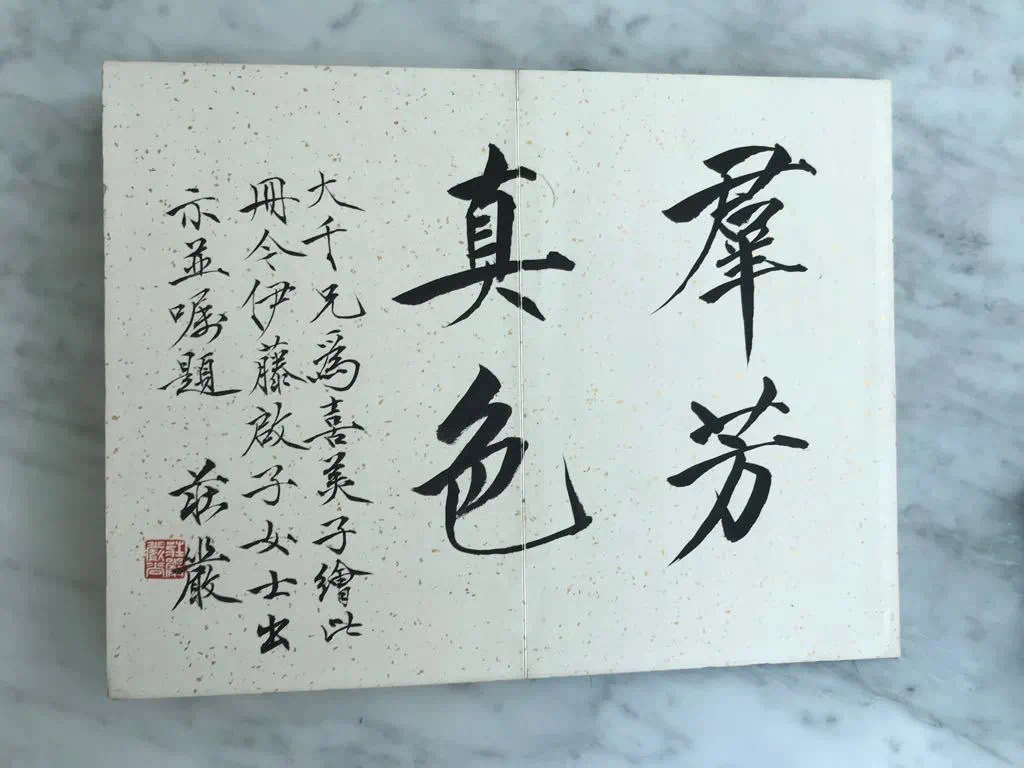 羣芳
真色
大千兄為喜美子繪此
冊令伊藤啟子女士出
示並嘱題
莊嚴